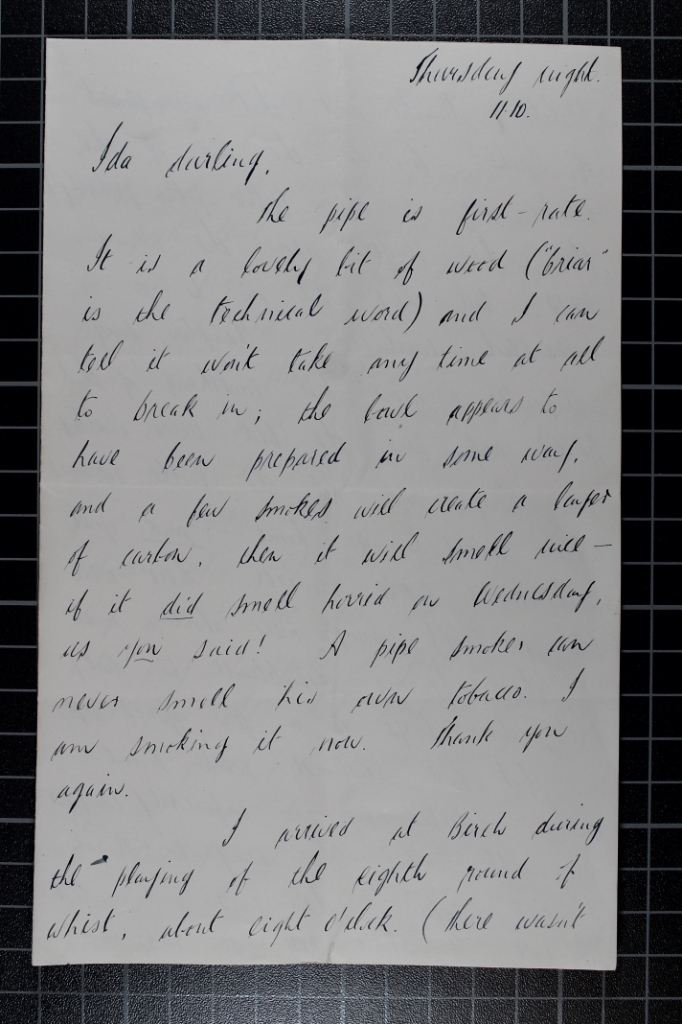 Thursday night.
11.10.
Ida darling,
the pipe is first-rate.
It is a lovely bit of wood ("briar"
is the technical word) and I can
tell it won't take any time at all
to break in; the bowl appears to
have been prepared in some way,
and a few smokes will create a layer
of carbon, then it will smell nice —
if it did smell horrid on Wednesday,
as you said! A pipe smoker can
never smell his own tobacco. I
am smoking it now. Thank you
again.
I arrived at Birch during
the playing of the eighth round of
whist, about eight o'clock. (there wasn't